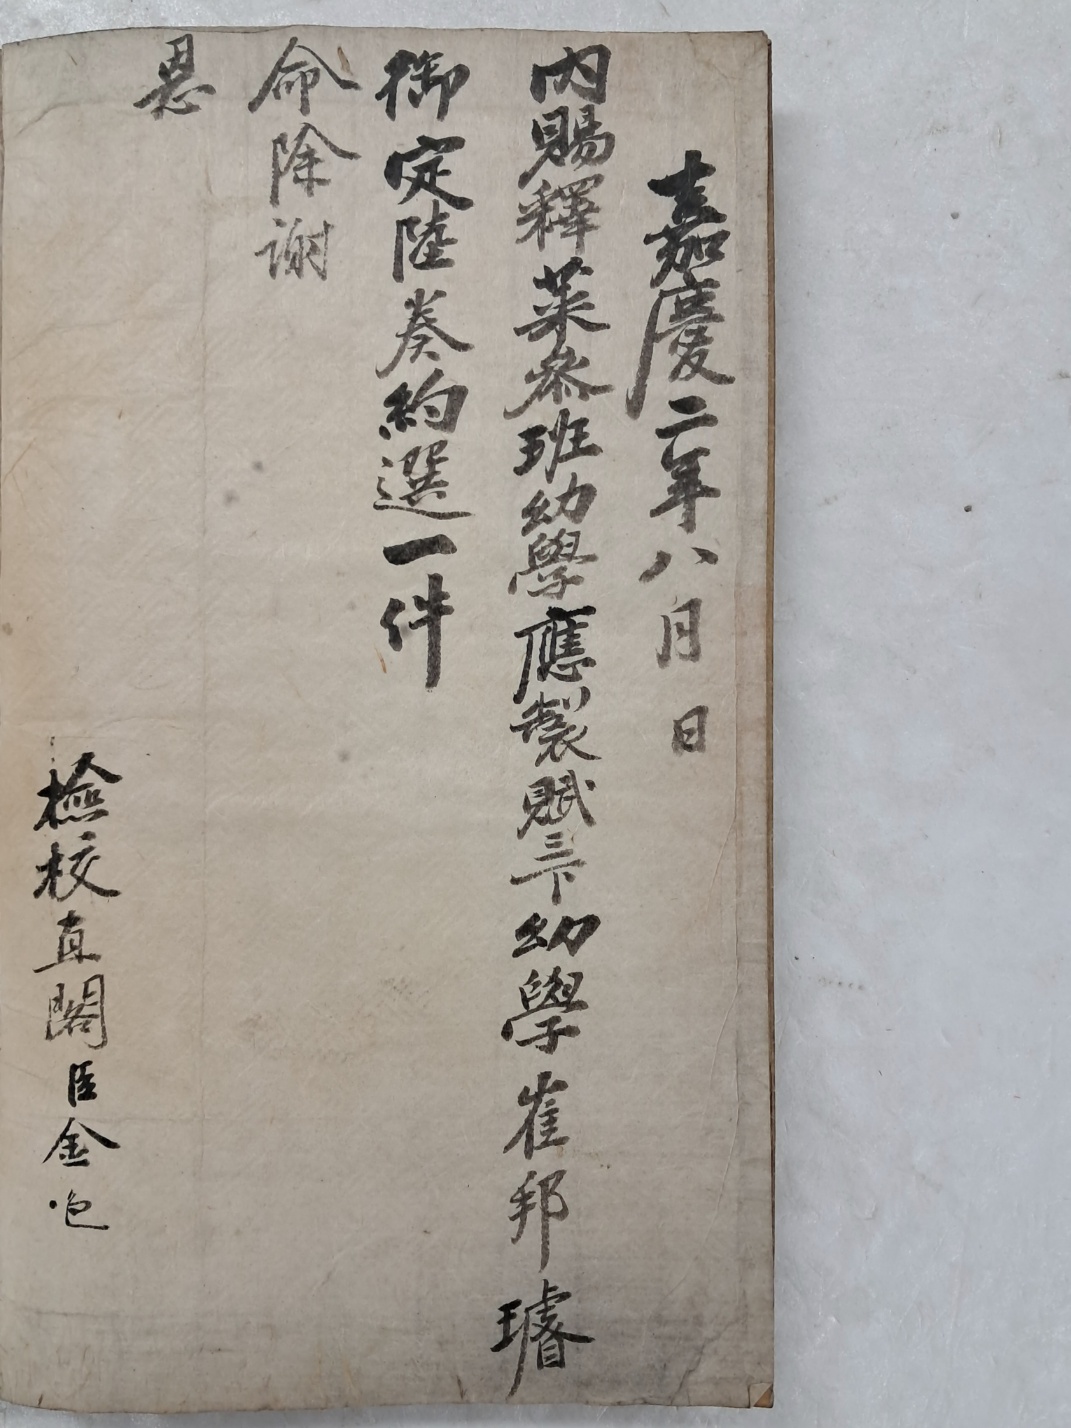 嘉慶二年八月 日
內賜釋菜參班幼學應製賦三下幼學崔邦璿
御定陸奏約選一件
命除謝
恩
檢校直閣臣金